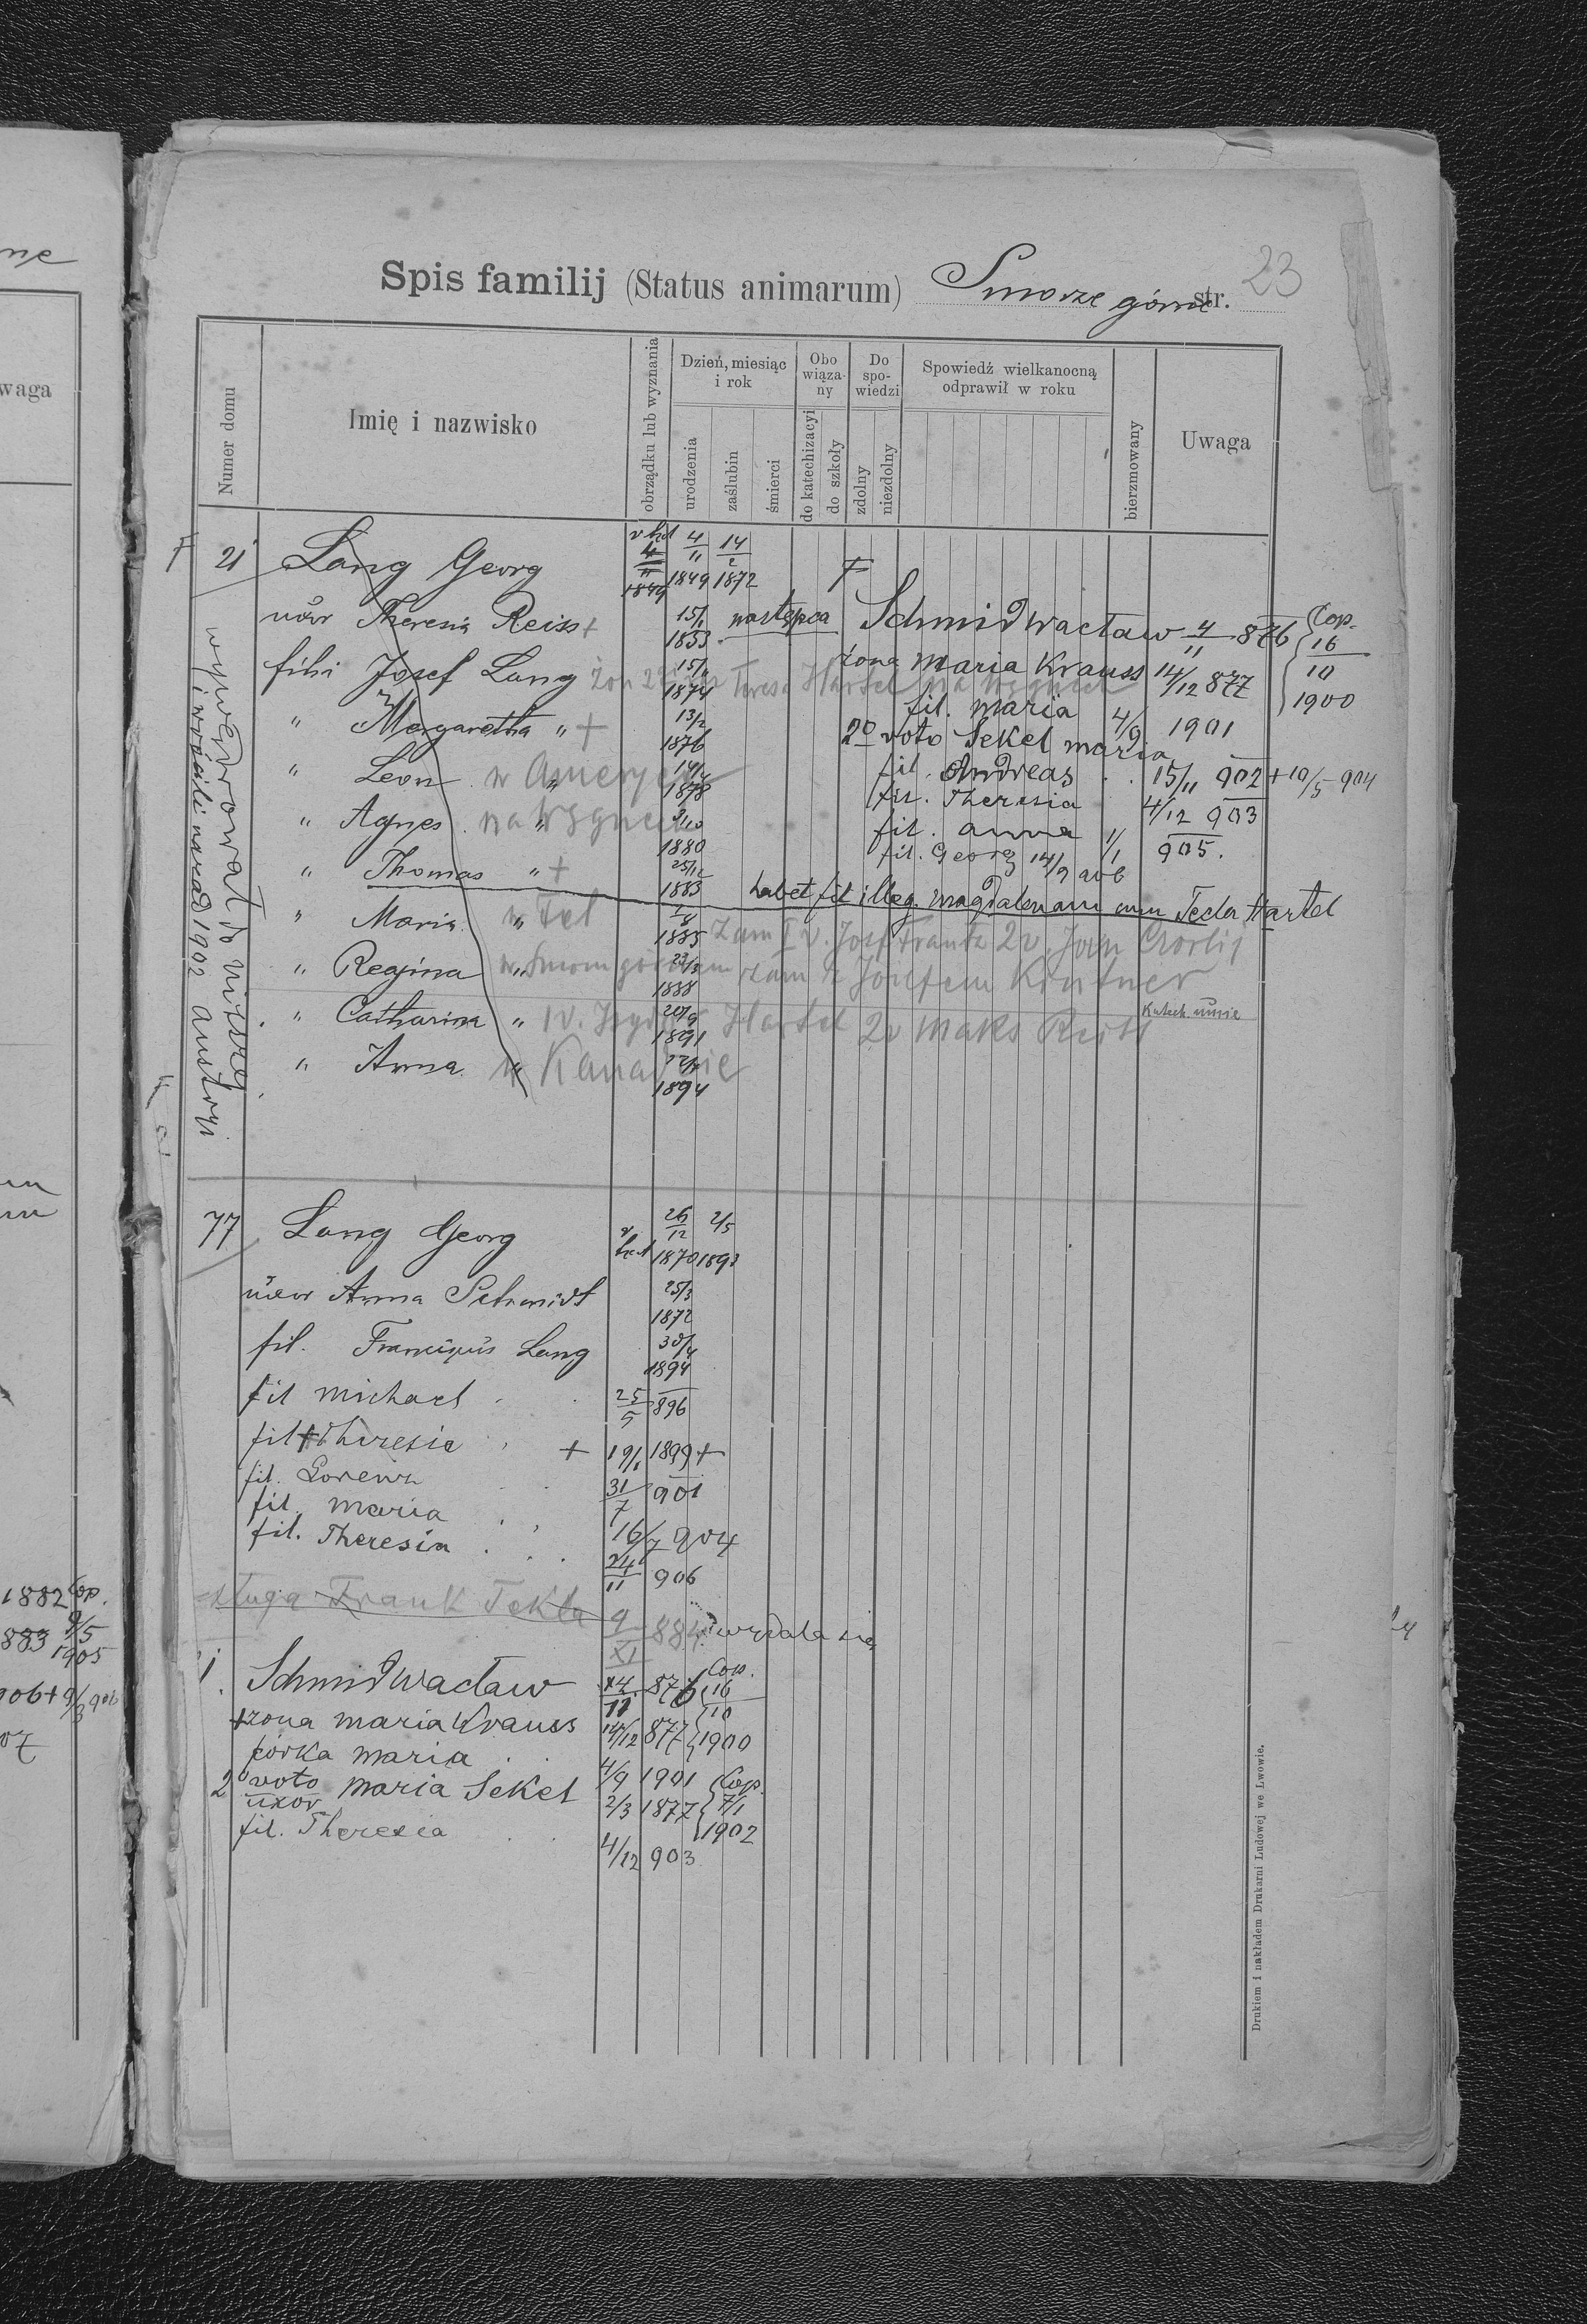 Spis familij (Status animarum) Smorze górne str. 23
Numer domu
Imię i nazwisko
obrządku lub wyznania
Dzień, miesiąc i rok
urodzenia
zaślubin
śmierci
Obowiązany
do katechizacyi
do szkoły
Do spowiedzi
zdolny
niezdolny
Spowiedź wielkanocną odprawił w roku
bierzmowany
Uwaga
21 Lang Georg 4/11 1849 14/2 1872
uxor Theresia Reiss + 15/1 1853 następca Schmid Wacław 4/11 876 Cop. 16/10 1900
żona Maria Krauss 14/12 877
filii Josef Lang 1874 Teresa Hartel na Węgrzech
fil. Maria 4/9 1901
" Margaretha " + 13/2 1876
2o voto Sekel Maria
" Leon " w Ameryce 1878
fil. Andreas 15/11 902 + 10/5 904
fil. Theresia 4/12 903
" Agnes " na Węgrzech 1880
fil. Anna 1/1 905.
fil. Georg 14/9 906
" Thomas " + 25/12 1883
habet fil illeg. Magdalenam cum Tecla Hartel
" Maria " 1885 zam I v. Josf Frantz 2v. Jan
" Regina " 1888 zam z Józefem Kintner
" Catharina " 1v. Hartel 2v Maks Reiss 20/9 1891
" Anna " w Kanadzie 1894
wywędrował do
i wrócili nazad 1902 Austryi
77 Lang Georg 26/12 1870 2/5 1893
uxor Anna Schmidt 25/3 1872
fil. Franciscus Lang 30/4 1894
fil Michael 25/5 896
fil + Theresia + 1899 +
fil. Lorenz 31/7 901
fil. Maria 16/7 904
fil. Theresia 24/11 906
sługa Frank Tekla 9/XI 884 wydala się
Schmid Wacław 4/11 876 Cop. 16/10 1900
+ żona Maria Krauss 14/12 877
córka Maria 4/9 1901
2o voto uxor Maria Sekel 2/3 1877 Cop. 7/1 1902
fil. Theresia 4/12 903
Drukiem i nakładem Drukarni Ludowej we Lwowie.
waga
1882 Cop.
883 9/5 1905